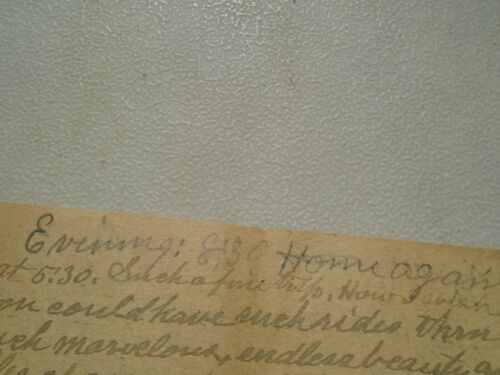 Evining: 8;30 Home again
at 5:30. Such a fine trip. How I wish
on could have such rides thru
uch marvelous, endless beauty a